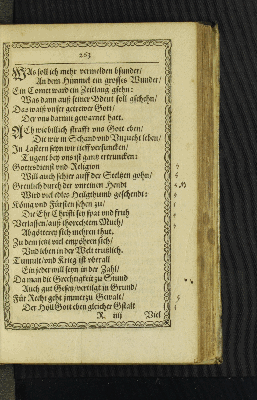 263
WAs soll ich mehr vermelden bsunder/
An dem Himmel ein grosses Wunder/
Ein Comet ward ein Zeitlang gsehn:
Was dann auß seiner Bdeut soll gschehn/
Das waist unser getrewer Gott/
Der uns darmit gewarnet hatt.
ACh wie billich strafft uns Gott eben/
Die wir in Schand und Unzucht leben/
In Lastern seyn wir tieff versuncken/
Tugent bey uns ist gantz ertruncken:
Gottesdienst und Religion
Will auch schier auff der Steltzen gohn/
Grewlich durch der unreinen Hendt
Wird viel edles Heiligthumb geschendt:
König und Fürsten sehen zu/
Die Ehr Christi sey spat und fruh
Verlassen/auß thorechtem Muth/
Abgötterey sich mehren thut.
Zu dem jetzt viel empören sich/
Und leben in der Welt trutzlich.
Tumult/und Krieg ist überall
Ein jeder will seyn in der Zahl/
Da man die Gerechtigkeit zu Stund
Auch gut Gesetz/vertilgt in Grund/
Für Recht geht jmmerzu Gewalt/
Der Höll Gott eben gleicher Gstalt
R iiij
Viel